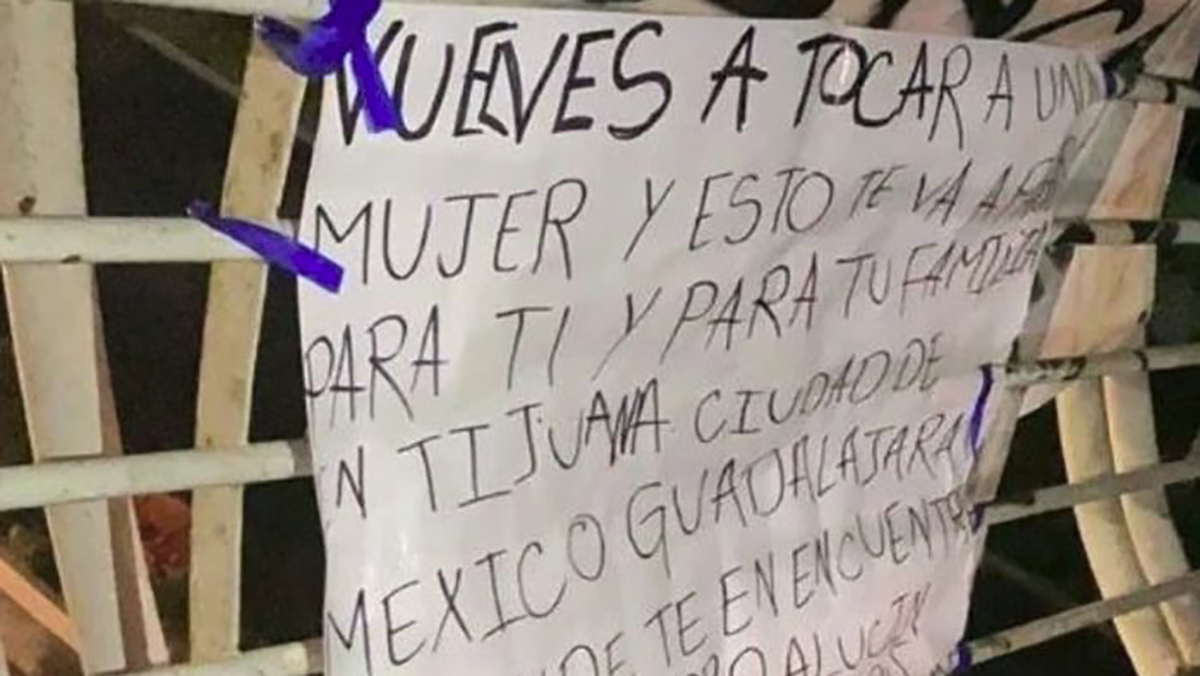 VUELVES A TOCAR A UNA
MUJER Y ESTO TE VA A
PARA TI Y PARA TU FAMILIA
N TIJUANA CIUDAD DE
MEXICO GUADALAJARA
DE TE EN ENCUENTRE
ALUCIN